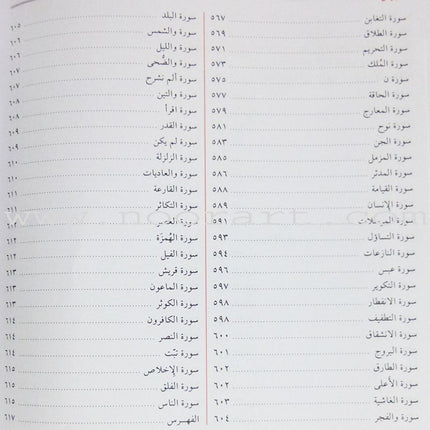 سورة التغابن ٥٦٧
سورة الطلاق ٥٦٩
سورة التحريم ٥٧١
سورة المُلك ٥٧٣
سورة ن ٥٧٥
سورة الحاقة ٥٧٧
سورة المعارج ٥٧٩
سورة نوح ٥٨١
سورة الجن ٥٨٣
سورة المزمل ٥٨٥
سورة المدثر ٥٨٦
سورة القيامة ٥٨٨
سورة الإنسان ٥٨٩
سورة المرسلات ٥٩١
سورة التساؤل ٥٩٣
سورة النازعات ٥٩٤
سورة عبس ٥٩٦
سورة التكوير ٥٩٧
سورة الانفطار ٥٩٨
سورة التطفيف ٥٩٨
سورة الانشقاق ٦٠٠
سورة البروج ٦٠١
سورة الطارق ٦٠٢
سورة الأعلى ٦٠٢
سورة الغاشية ٦٠٣
سورة والفجر ٦٠٤
سورة البلد ٦٠٥
سورة والشمس ٦٠٦
سورة والليل ٦٠٦
سورة والضُّحى ٦٠٧
سورة ألم نشرح ٦٠٧
سورة والتين ٦٠٨
سورة اقرأ ٦٠٨
سورة القدر ٦٠٩
سورة لم يكن ٦٠٩
سورة الزلزلة ٦١٠
سورة والعاديات ٦١٠
سورة القارعة ٦١١
سورة التكاثر ٦١١
سورة العصر
سورة الهُمزة ٦١٢
سورة الفيل ٦١٢
سورة قريش ٦١٣
سورة الماعون ٦١٣
سورة الكوثر ٦١٣
سورة الكافرون ٦١٤
سورة النصر ٦١٤
سورة تبّت ٦١٤
سورة الإخلاص ٦١٥
سورة الفلق ٦١٥
سورة الناس ٦١٥
الفهـرس ٦١٧
www.noorart.com